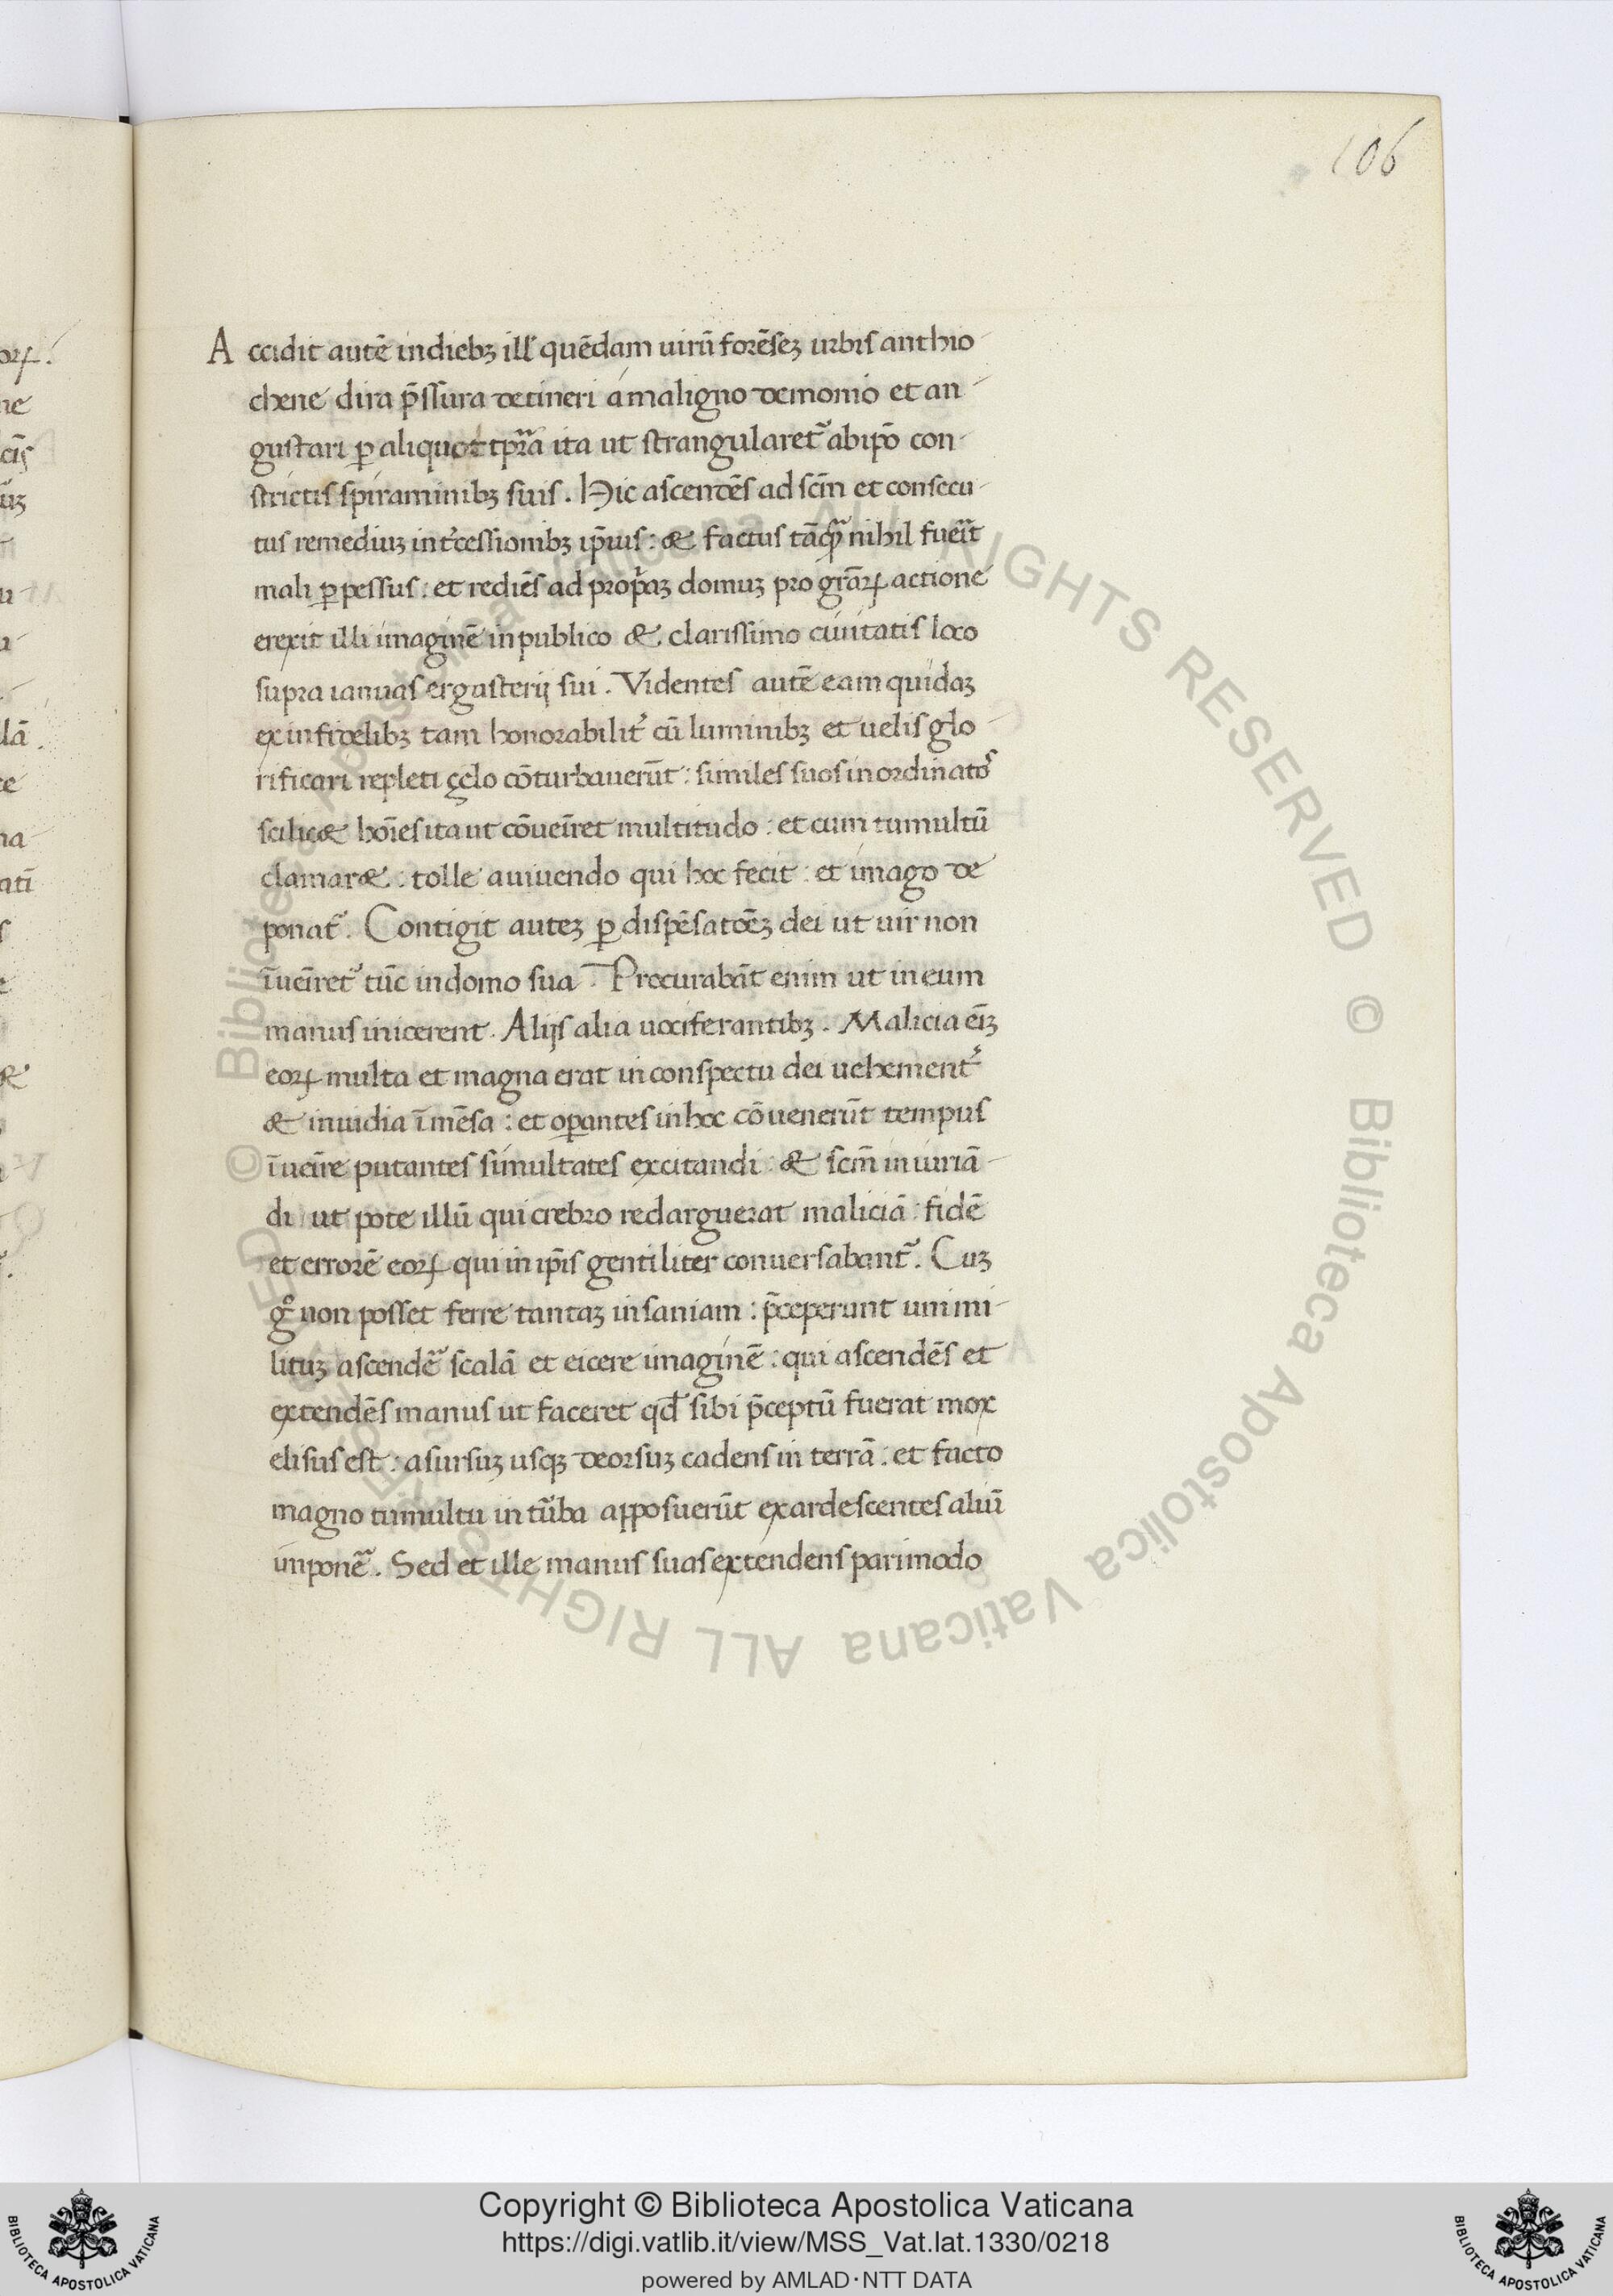 106
Accidit autē in diebꝫ ill' quēdam uirū forēseꝫ urbis anthio-
chene dira p̄ssura detineri a maligno demonio et an-
gustari ꝑ aliquot tp̄ra ita ut strangularet᷑ ab ip̄o con-
strictis spiraminibꝫ suis. Hic ascendēs ad sc̄m et consecu-
tus remediuꝫ int̾cessionibꝫ ip̄ius: & factus tāq̄ nihil fuerit
mali ꝑpessus: et rediēs ad prop̄aꝫ domuꝫ pro gr̄aꝝ actione
erexit illi imaginē in publico & clarissimo ciuitatis loco
supra ianuas ergasterij sui. Videntes autē eam quidaꝫ
ex infidelibꝫ tam honorabilit̾ cū luminibꝫ et uelis glo-
rificari repleti çelo cōturbauerūt: similes suos inordinatos
scilic& hōies ita ut cōueīret multitudo: et cum tumultū
clamar&: tolle a uiuendo qui hoc fecit: et imago de
ponat᷑. Contigit auteꝫ ꝑ dispēsatōeꝫ dei ut uir non
īueīret᷑ tūc in domo sua. Procurabāt enim ut in eum
manus inicerent. Alijs alia uociferantibꝫ. Malicia eīꝫ
eoꝝ multa et magna erat in conspectu dei uehement̾
& inuidia īmēsa: et oꝑantes in hoc cōuenerūt tempus
īueīre putantes simultates excitandi: & scm̄ iniuriā-
di ut pote illū qui crebro redarguerat maliciā: fidē
et errorē eoꝝ qui in ip̄is gentiliter conuersabant᷑. Cuꝫ
g̊ non posset ferre tantaꝫ insaniam: p̄ceperunt uni mi-
lituꝫ ascendē scalā et eicere imaginē: qui ascendēs et
extendēs manus ut faceret qd̄ sibi p̄ceptū fuerat mox
elisus est: a sursuꝫ usqꝫ deorsuꝫ cadens in terrā: et facto
magno tumultu in tūba apposuerūt exardescentes aliū
imponē. Sed et ille manus suas extendens pari modo
Copyright © Biblioteca Apostolica Vaticana
https://digi.vatlib.it/view/MSS_Vat.lat.1330/0218
powered by AMLAD·NTT DATA